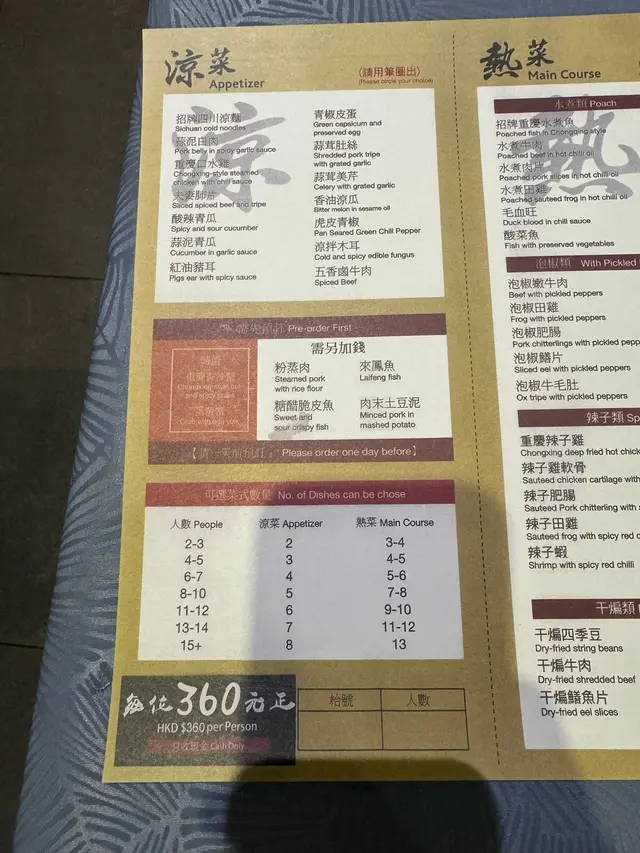 涼菜
Appetizer
（請用筆圈出）
(Please circle your choice)
涼
招牌四川涼麵
Sichuan cold noodles
蒜泥白肉
Pork belly in spicy garlic sauce
重慶口水雞
Chongxing-style steamed
chicken with chili sauce
夫妻肺片
Sliced spiced beef and tripe
酸辣青瓜
Spicy and sour cucumber
蒜泥青瓜
Cucumber in garlic sauce
紅油豬耳
Pigs ear with spicy sauce
青椒皮蛋
Green capsicum and
preserved egg
蒜茸肚絲
Shredded pork tripe
with grated garlic
蒜茸美芹
Celery with grated garlic
香油涼瓜
Bitter melon in sesame oil
虎皮青椒
Pan Seared Green Chili Pepper
涼拌木耳
Cold and spicy edible fungus
五香鹵牛肉
Spiced Beef
需先預訂 Pre-order First
重慶
Chongqing-style
and spicy
Crab with
需另加錢
粉蒸肉
Steamed pork
with rice flour
來鳳魚
Laifeng fish
糖醋脆皮魚
Sweet and
sour crispy fish
肉末土豆泥
Minced pork in
mashed potato
Please order one day before】
可選菜式數量 No. of Dishes can be chose
人數 People 涼菜 Appetizer 熱菜 Main Course
2-3 2 3-4
4-5 3 4-5
6-7 4 5-6
8-10 5 7-8
11-12 6 9-10
13-14 7 11-12
15+ 8 13
每位360元正
HKD $360 per Person
只收現金 Cash Only
枱號 人數
熱菜
Main Course
水煮類 Poach
熱
招牌重慶水煮魚
Poached fish in Chongqing style
水煮牛肉
Poached beef in hot chilli oil
水煮肉片
Poached pork slices in hot chilli oil
水煮田雞
Poached sauteed frog in hot chilli oil
毛血旺
Duck blood in chili sauce
酸菜魚
Fish with preserved vegetables
泡椒類 With Pickled
泡椒嫩牛肉
Beef with pickled peppers
泡椒田雞
Frog with pickled peppers
泡椒肥腸
Pork chitterlings with pickled
泡椒鱔片
Sliced eel with pickled peppers
泡椒牛毛肚
Ox tripe with pickled peppers
辣子類
重慶辣子雞
Chongxing deep fried hot
辣子雞軟骨
Sauteed chicken cartilage with
辣子肥腸
Sauteed Pork chitterling with
辣子田雞
Sauteed frog with spicy red
辣子蝦
Shrimp with spicy red chilli
干煸類
干煸四季豆
Dry-fried string beans
干煸牛肉
Dry-fried shredded beef
干煸鱔魚片
Dry-fried eel slices